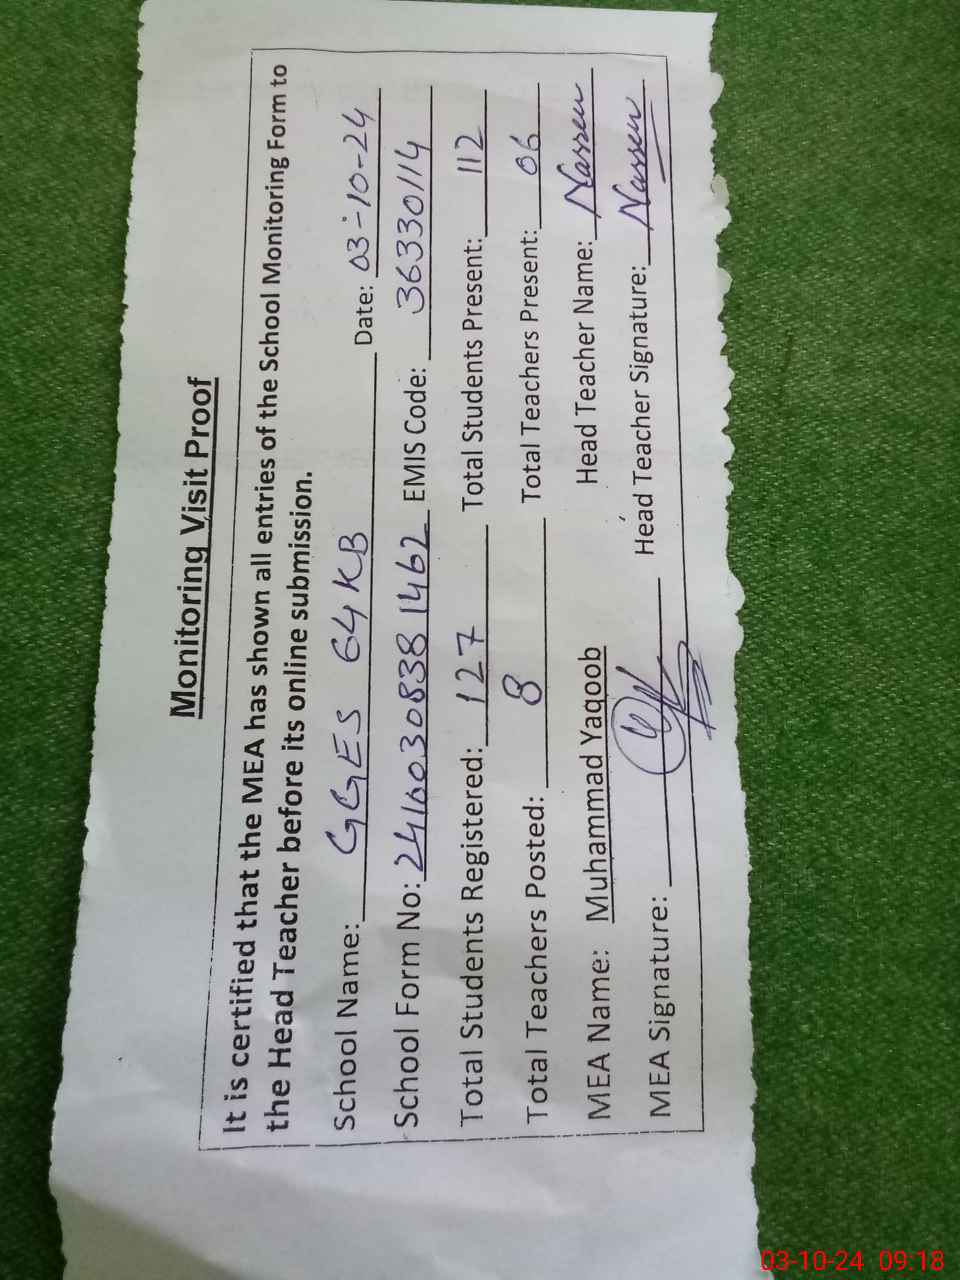 Monitoring Visit Proof
It is certified that the MEA has shown all entries of the School Monitoring Form to
the Head Teacher before its online submission.
School Name: GGES 64 KB Date: 03-10-24
School Form No: 24100308381462 EMIS Code: 36330114
Total Students Registered: 127 Total Students Present: 112
Total Teachers Posted: 8 Total Teachers Present: 06
MEA Name: Muhammad Yaqoob Head Teacher Name: Nasreen
MEA Signature: Head Teacher Signature: Nasreen
03-10-24 09:18